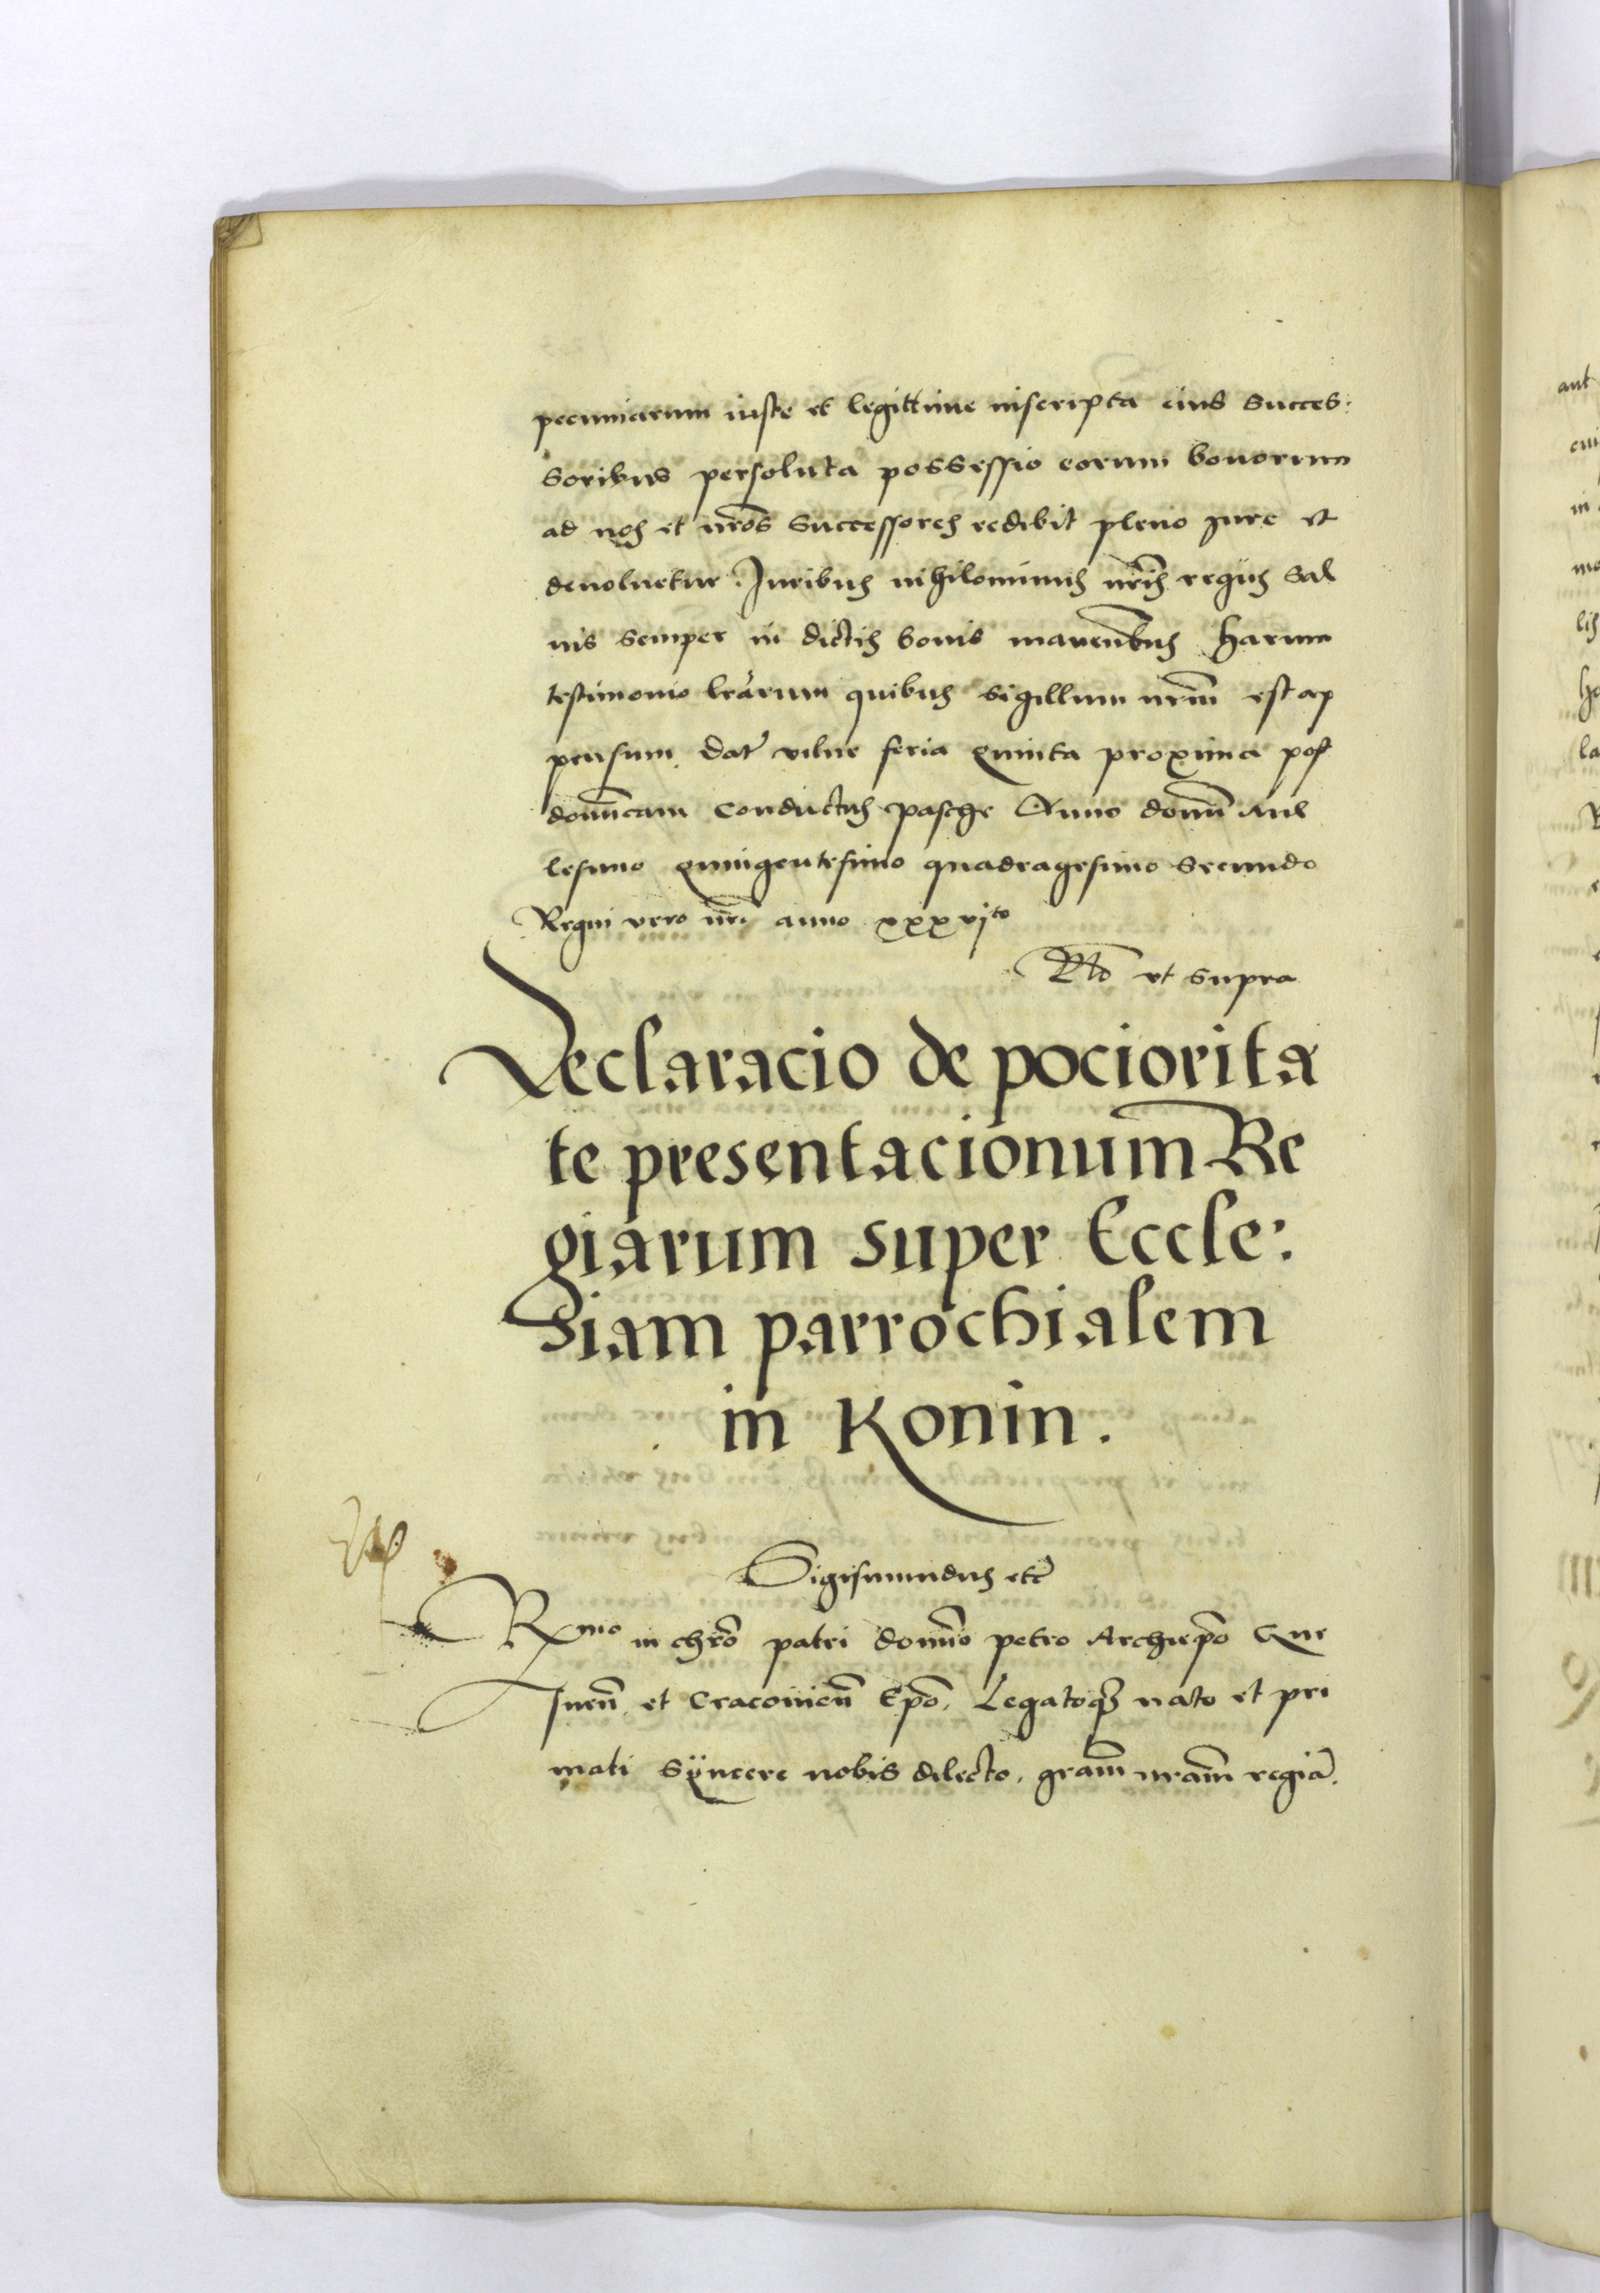 pecuniarum iuste et legittime inscripta eius Succes:
soribus persoluta possessio eorum bonorum
ad nos et nr̃os Successores redibit pleno Jure et
devoluetur. Juribus nihilominus nr̃is regiis Sal
uis semper in dictis bonis manen̄bus harum
testimonio lr̃arum quibus sigillum nr̃um est ap
pensum. Dat̃ vilne feria quinta proxima post
domi͂cam Conductus pasche Anno domi͂ mil
lesimo quingentesimo quadragesimo Secundo
Regni vero nr̃i anno xxxvjto
Rlõ ut supra
Declaracio de pociorita
te presentacionum Re
giarum super Eccle:
siam parrochialem
in Konin.
Sigismundus etc̃
Rmo in chr̃o patri domi͂o petro Archiep̃o Gne
sneñ. et Cracovieñ Ep̃o. Legatoq3 nato et pri
mati syncere nobis dilecto. gr̃am nr̃am regiã.